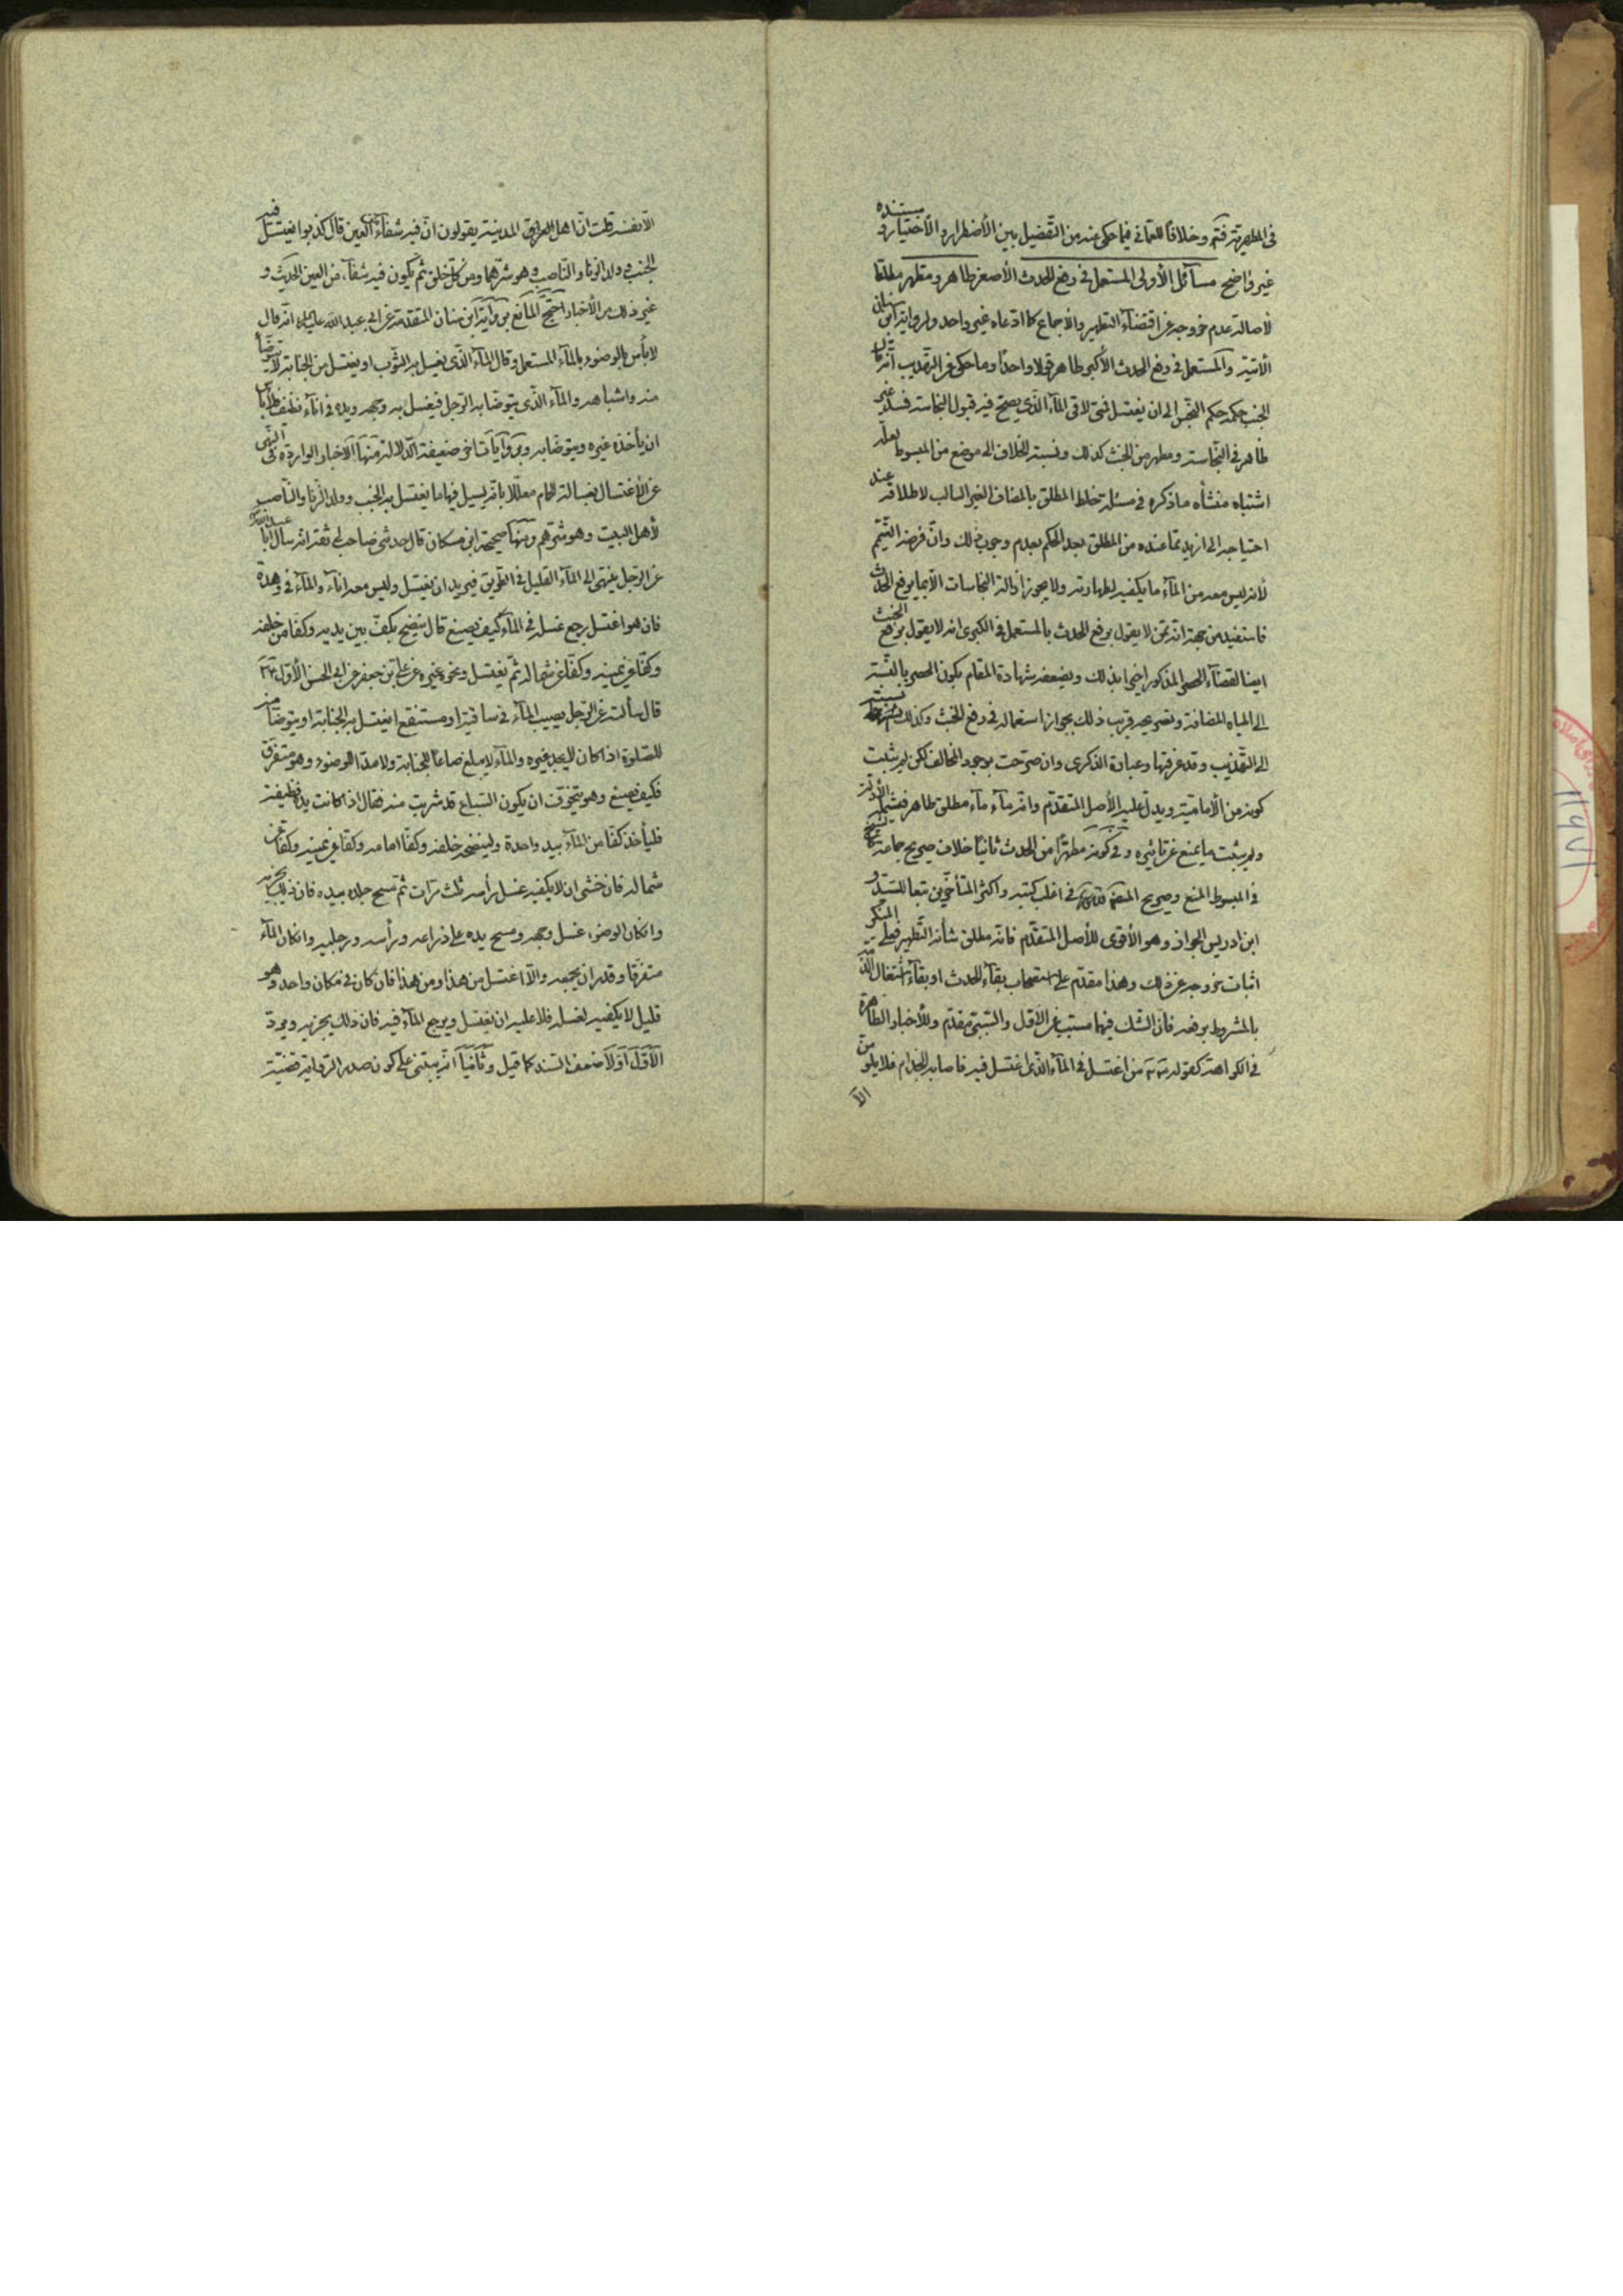 في المطهرية فتم وخلافا للعماني فيما حكي عنه من التفصيل بين الأضطرار والأختيار ومستنده
غير واضح مسائل الأولى المستعمل في رفع الحدث الأصغر طاهر ومطهر مطلقا
لاصالة عدم خروجه عن اقتضاء التطهير والأجماع كما ادعاه غير واحد ولرواية ابن سنان
الأتية والمستعمل في رفع الحدث الأكبر طاهر قولا واحدا وما حكي عن التهذيب أنه قال
الجنب حكمه حكم النجس إلى ان يغتسل فمتى لاقى الماء الذي يصح فيه قبول النجاسة فسد غير
ظاهر في النجاسة ومطهر من الخبث كذلك ونسبة الخلاف الى موضع من المبسوط لعله
اشتباه منشأه ما ذكره في مسئلة خلط المطلق بالمضاف الغير السالب لاطلاقه عند
احتياجه إلى ازيد مما عنده من المطلق بعد الحكم بعدم وجوب ذلك وان فرضه التيمم
لأنه ليس معه من الماء ما يكفيه لطهارته ولا يجوز أزالة النجاسات الا بما يرفع الحدث
فاستفيد من جهة انه ممن لا يقول برفع الحدث بالمستعمل في الكبرى انه لا يقول برفع الخبث
ايضا لقضاء الحصر المذكور اخيرا بذلك ويضعفه شهادة المقام بكون الحصر بالنسبة
الى المياه المضافة وتصريحه قريب ذلك بجواز استعماله في رفع الخبث وكذلك نسبته
إلى التهذيب وقد عرفتها وعبارة الذكرى وان صرحت بوجود المخالف لكن لم يثبت
كونه من الأمامية ويدل عليه الأصل المتقدم وانه ماء مطلق طاهر فيشمله الأدلة
ولم يثبت ما يمنع عن تاثيره وفي كونه مطهرا من الحدث ثانيا خلاف صريح جماعة كالشيخ
في المبسوط المنع وصريح في اغلب كتبه واكثر المتأخرين تبعا للسيد و
ابن ادريس الجواز وهو الأقوى للأصل المتقدم فانه مطلق شأنه التطهير فعلى المنكر
اثبات خروجه عن ذلك وهذا مقدم على استصحاب بقاء الحدث او بقاء اشتغال الذمة
بالمشروط برفعه فان الشك فيهما مسبب عن الاول والسببي مقدم وللأخبار الظاهرة
في الكراهة كقوله من اغتسل في الماء الذي اغتسل فيه فاصابه الجذام فلا يلومن
الا
الا نفسه قلت ان اهل المدينة يقولون ان فيه شفاء من العين قال كذبوا يغتسل فيه
الجنب وولد الزنا والناصب وهو شرهما ومن كل خلق ثم يكون فيه شفاء من العين الحديث و
غير ذلك من الأخبار احتج المانع برواية ابن سنان المتقدمة عن ابي عبد الله عليه السلام انه قال
لا بأس بالوضوء بالماء المستعمل وقال الماء الذي يغسل به الثوب او يغتسل من الجنابة لا يتوضأ
منه واشباهه والماء الذي يتوضأ به الرجل فيغسل به وجهه ويده في اناء نظيف فلا بأس
ان يأخذه غيره ويتوضأ به وبروايات اخر ضعيفة الدلالة منها الأخبار الواردة في النهي
عن الأغتسال بغسالة الحمام معللا بانه يسيل فيها ما يغتسل به الجنب وولد الزنا والناصب
لأهل البيت وهو شرهم ومنها صحيحة ابن مسكان قال حدثني صاحب لي ثقة انه سأل ابا عبد الله
عن الرجل ينتهي الى الماء القليل في الطريق فيريد ان يغتسل وليس معه اناء والماء في وهدة
فان هو اغتسل رجع غسله في الماء كيف يصنع قال ينضح بكف بين يديه وكفا من خلفه
وكفا عن يمينه وكفا عن شماله ثم يغتسل ونحوه غيره عن علي بن جعفر عن ابي الحسن الأول
قال سألته عن الرجل يصيب الماء في ساقية او مستنقع ايغتسل به للجنابة او يتوضأ منه
للصلوة اذا كان لا يجد غيره والماء لا يبلغ صاعا للجنابة ولا مدا للوضوء وهو متفرق
فكيف يصنع وهو يتخوف ان يكون السباع قد شربت منه فقال اذا كانت يده نظيفة
فليأخذ كفا من الماء بيد واحدة ولينضحه خلفه وكفا امامه وكفا عن يمينه وكفا عن
شماله فان خشي ان لا يكفيه غسل رأسه ثلث مرات ثم مسح جلده بيده فان ذلك يجزيه
وان كان الوضوء غسل وجهه ومسح يده على ذراعه ورأسه ورجليه وان كان الماء
متفرقا وقدر ان يجمعه والا اغتسل من هذا ومن هذا فان كان في مكان واحد وهو
قليل لا يكفيه لغسله فلا عليه ان يغتسل ويرجع الماء فيه فان ذلك يجزيه ويرد
الأول أولا ضعف السند كما قيل وثانيا انه يبتني على كون صدر الرواية قضية